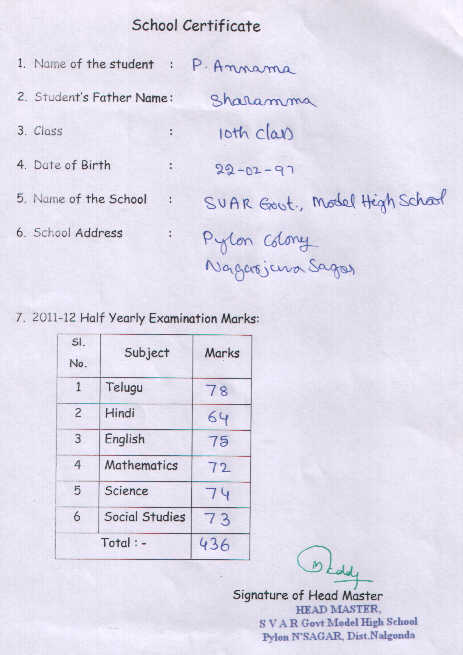 School Certificate
1. Name of the student : P. Annama
2. Student's Father Name: Sharamma
3. Class : 10th Class
4. Date of Birth : 22-02-97
5. Name of the School : SVAR Govt., Model High School
6. School Address : Pylon Colony
Nagarjuna Sagar
7. 2011-12 Half Yearly Examination Marks:
Sl. No. Subject Marks
1 Telugu 78
2 Hindi 64
3 English 75
4 Mathematics 72
5 Science 74
6 Social Studies 73
Total : - 436
Reddy
Signature of Head Master
HEAD MASTER,
S V A R Govt Model High School
Pylon N'SAGAR, Dist.Nalgonda